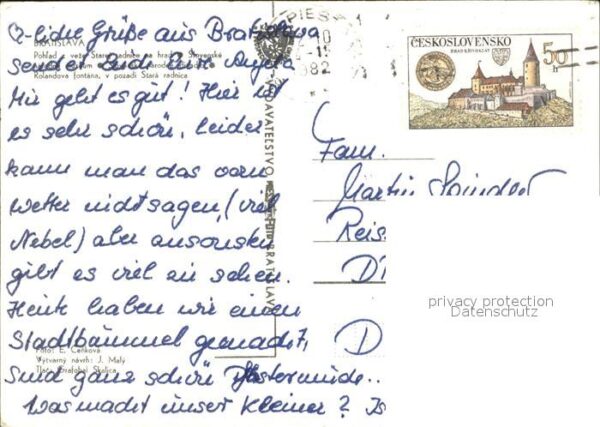 ♡-liche Grüße aus Bratislava
sendet Euch Eure Angela
Mir geht es gut! Hier ist
es sehr schön, leider
kann man das vom
Wetter nicht sagen, (viel
Nebel) aber ansonsten
gibt es viel zu sehen.
Heute haben wir einen
Stadtbummel gemacht,
Sind ganz schön Pflastermüde..
Was macht unser Kleiner?
BRATISLAVA
Pohľad z veže Starej radnice na hrad
Slovenské
Rolandova fontána, v pozadí Stará radnica
Foto: E. Čenková
Výtvarný návrh: J. Malý
Tlač: Grafobal Skalica
BRATISLAVA
PIEŠ
982
ČESKOSLOVENSKO
HRAD KRIVOKLAT
50 h
Fam.
Martin
Reis
D
privacy protection
Datenschutz